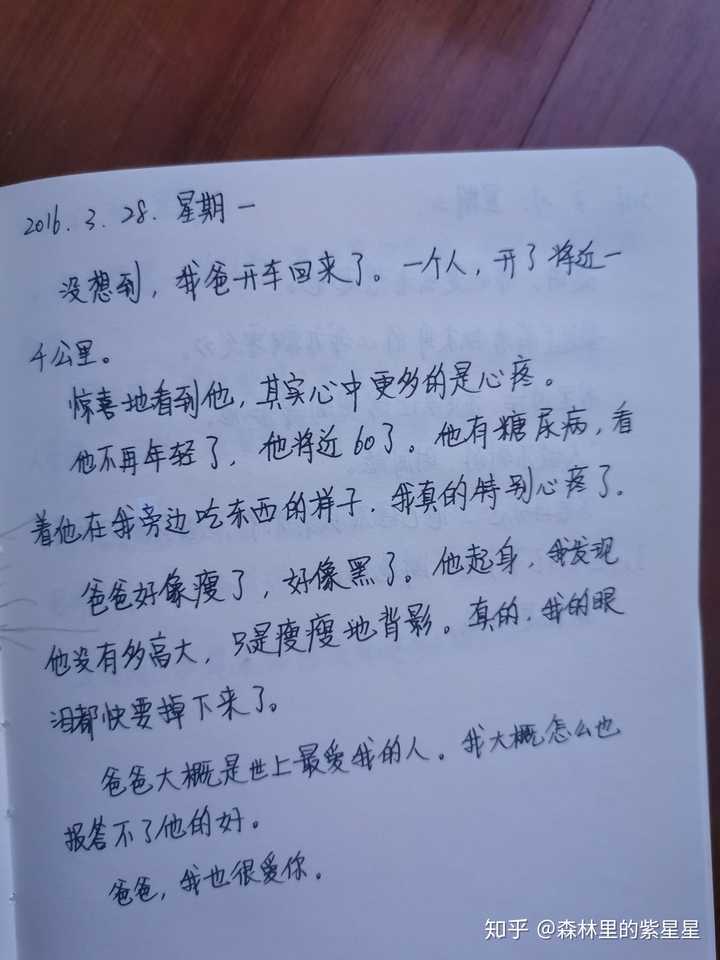 2016.3.28. 星期一
没想到，我爸开车回来了。一个人，开了将近一
千公里。
惊喜地看到他，其实心中更多的是心疼。
他不再年轻了，他将近60了。他有糖尿病，看
着他在我旁边吃东西的样子，我真的特别心疼了。
爸爸好像瘦了，好像黑了。他起身，我发现
他没有多高大，只是瘦瘦地背影。真的，我的眼
泪都快要掉下来了。
爸爸大概是世上最爱我的人。我大概怎么也
报答不了他的好。
爸爸，我也很爱你。
知乎 @森林里的紫星星